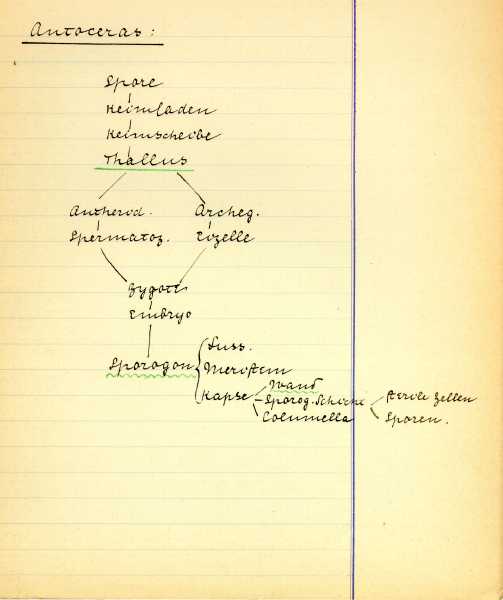 Antoceras:
Spore
Keimfaden
Keimscheibe
Thallus
Antherid. Archeg.
Spermatoz. Eizelle
Zygote
Embryo
Sporogon
Fuss.
Meristem
Kapsel
Wand
Sporog. Schicht
Columella
Sterile Zellen
Sporen.